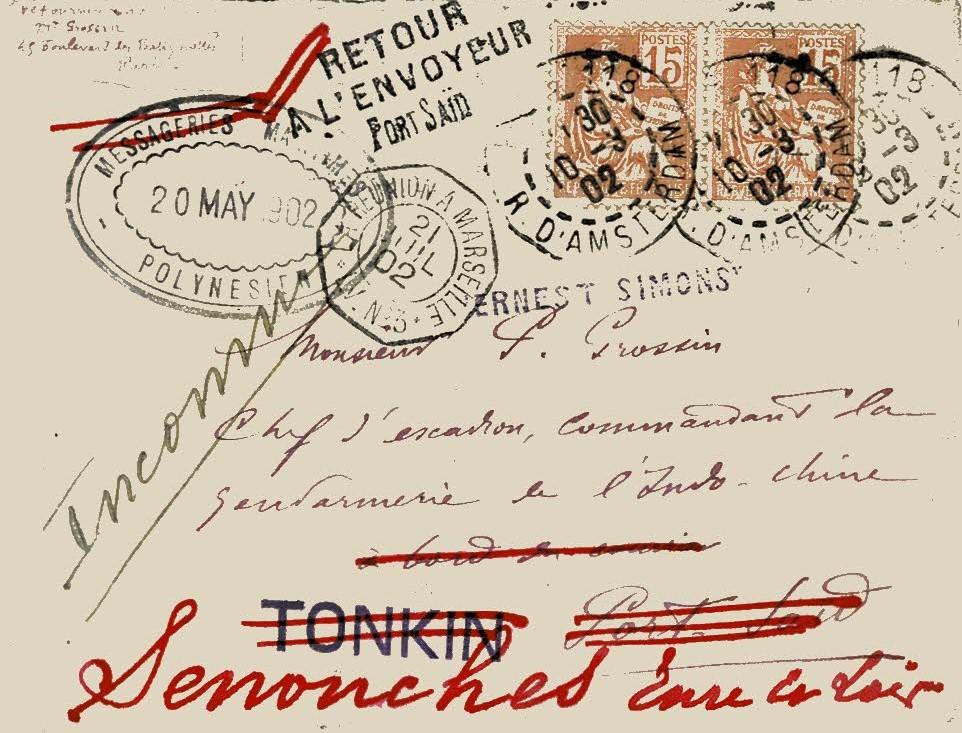 Mr Grossin
Paris
RETOUR
A L'ENVOYEUR
PORT SAÏD
POSTES
15
POSTES
15
118
30
10 -3
02
R. D'AMSTERDAM
118
30
10 -3
02
R. D'AMSTERDAM
118
02
MESSAGERIES MARITIMES
20 MAY 1902
POLYNESIEN
REUNION A MARSEILLE
21
JUIL
02
ERNEST SIMONS
Inconnu
Monsieur P. Grossin
Chef d'escadron, commandant la
Gendarmerie de l'Indo-chine
à bord du courrier
TONKIN Port-Saïd
Senonches Eure et Loir